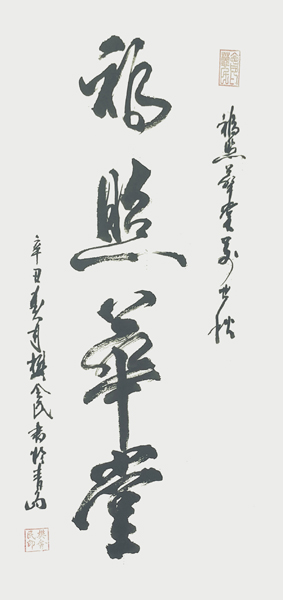 福照華堂
福照華堂
辛丑春月樊全民書於青島